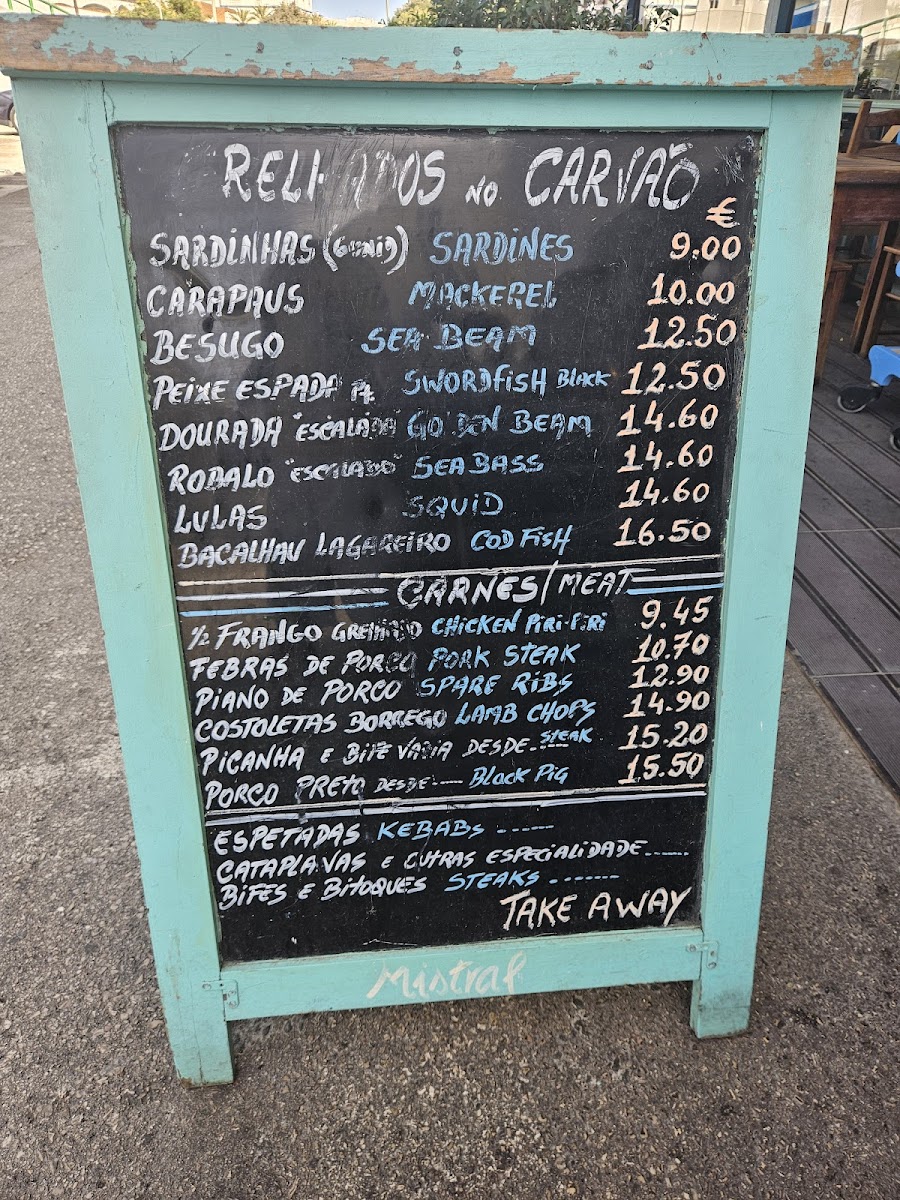 NO CARVÃO
€
SARDINHAS (6unid) SARDINES 9.00
CARAPAUS MACKEREL 10.00
BESUGO SEA BEAM 12.50
PEIXE ESPADA PT SWORDFISH BLACK 12.50
DOURADA "ESCALADA" GOLDEN BEAM 14.60
ROBALO "ESCALADO" SEABASS 14.60
LULAS SQUID 14.60
BACALHAU LAGAREIRO COD FISH 16.50
CARNES/MEAT
1/2 FRANGO GRELHADO CHICKEN PIRI-PIRI 9.45
FEBRAS DE PORCO PORK STEAK 10.70
PIANO DE PORCO SPARE RIBS 12.90
COSTOLETAS BORREGO LAMB CHOPS 14.90
PICANHA E BIFE VAZIA DESDE---- STEAK 15.20
PORCO PRETO DESDE---- BLACK PIG 15.50
ESPETADAS KEBABS ------
CATAPLANAS E OUTRAS ESPECIALIDADE------
BIFES E BITOQUES STEAKS -------
TAKE AWAY
Mistral